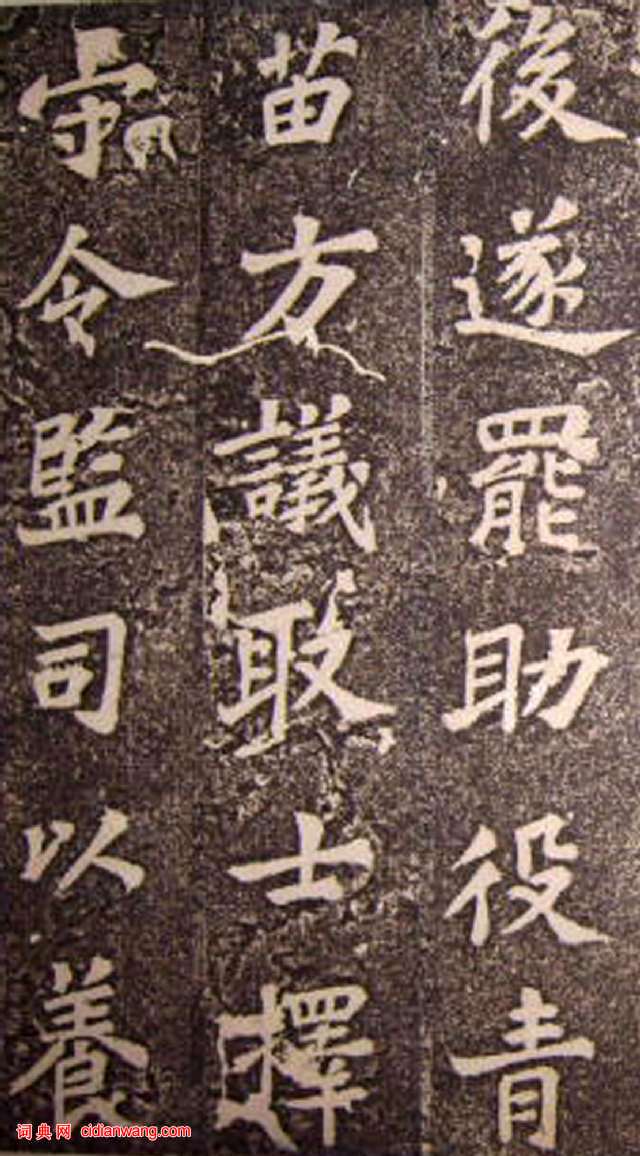 後遂罷助役青
苗方議取士擇
守令監司以養
词典网 cidianwang.com